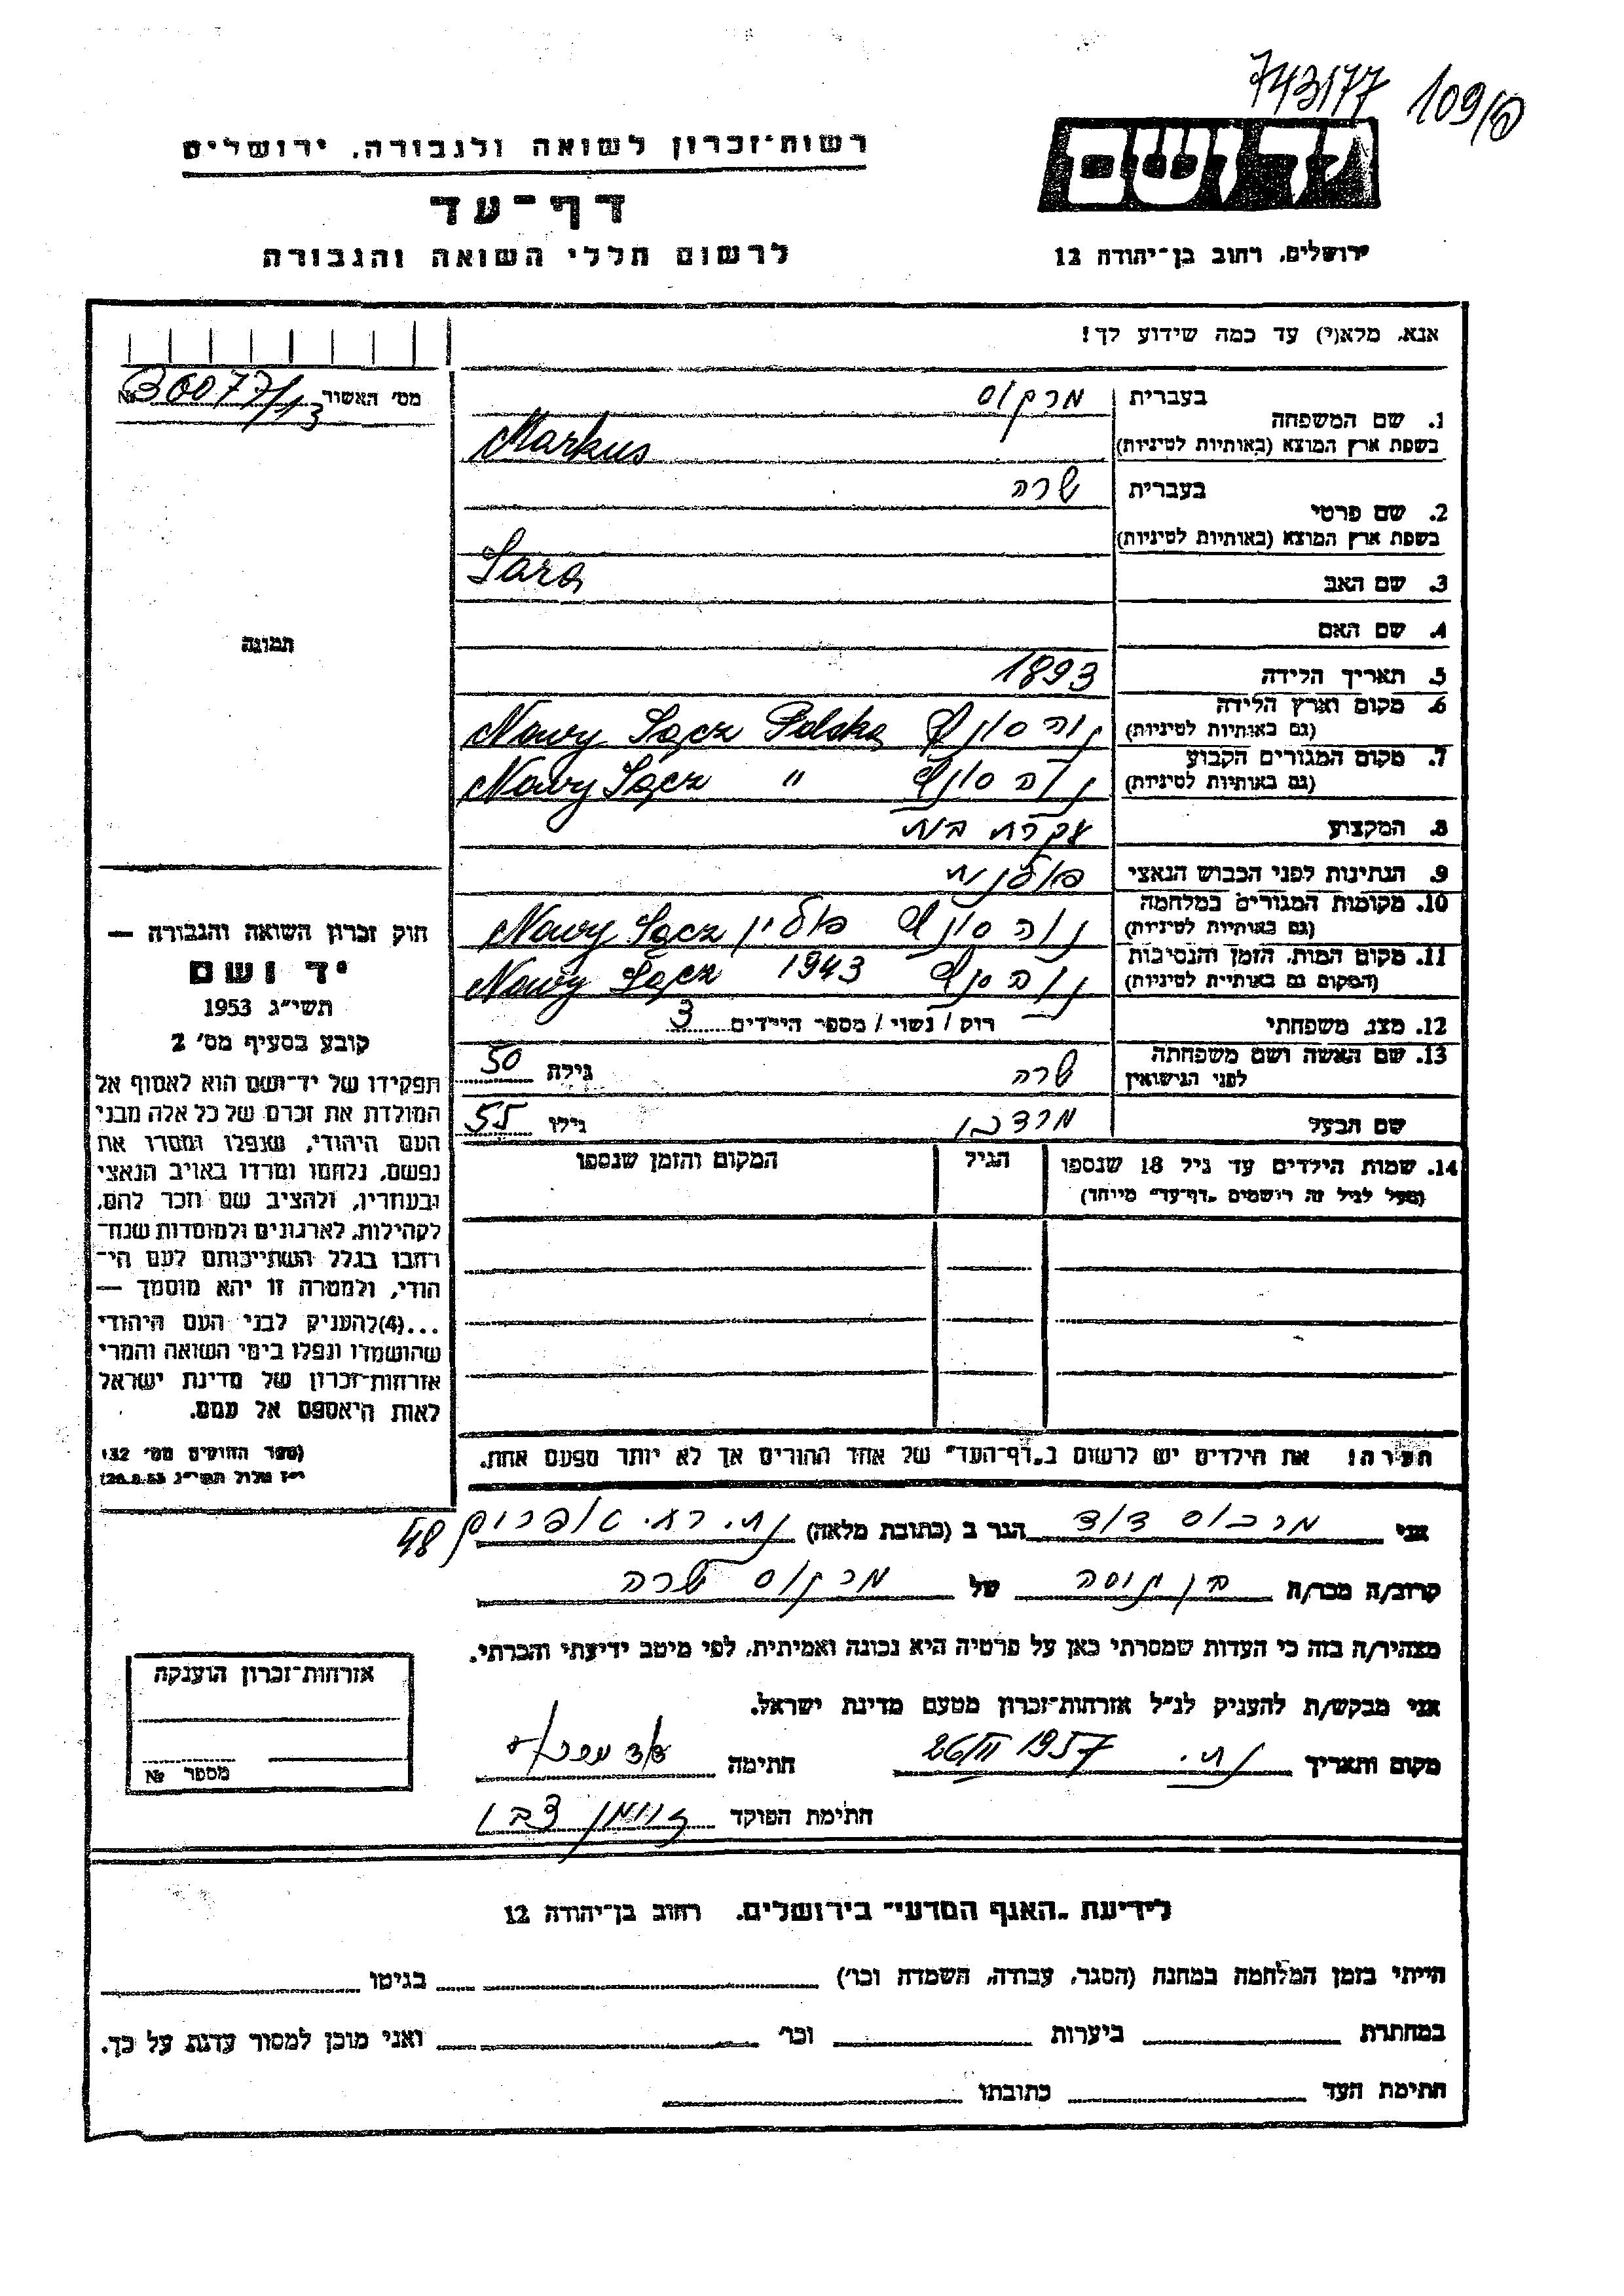 743177 109/פ
רשות־זכרון לשואה ולגבורה, ירושלים
יד ושם
דף־עד
לרשום חללי השואה והגבורה
ירושלים, רחוב בן־יהודה 12
אנא, מלא(י) עד כמה שידוע לך!
מס׳ האשור № 36077/13
1. שם המשפחה בעברית מרקוס
בשפת ארץ המוצא (באותיות לטיניות) Markus
2. שם פרטי בעברית שרה
בשפת ארץ המוצא (באותיות לטיניות)
3. שם האב Sara
4. שם האם
תמונה
5. תאריך הלידה 1893
6. מקום וארץ הלידה
(גם באותיות לטיניות) Nowy Sącz Polska
7. מקום המגורים הקבוע
(גם באותיות לטיניות) Nowy Sącz "
8. המקצוע עקרת בית
9. הנתינות לפני הכבוש הנאצי פולנית
10. מקומות המגורים במלחמה
(גם באותיות לטיניות) פולין Nowy Sącz
11. מקום המות, הזמן והנסיבות
(המקום גם באותיות לטיניות) 1943 Nowy Sącz
12. מצב משפחתי רוק / נשוי / מספר הילדים 3
13. שם האשה ושם משפחתה
לפני הנישואין שרה גילה 50
שם הבעל מרדכי גילו 55
14. שמות הילדים עד גיל 18 שנספו הגיל המקום והזמן שנספו
(מעל לגיל זה רושמים „דף־עד״ מיוחד)
חוק זכרון השואה והגבורה —
יד ושם
תשי״ג 1953
קובע בסעיף מס׳ 2
תפקידו של יד־ושם הוא לאסוף אל
המולדת את זכרם של כל אלה מבני
העם היהודי, שנפלו ומסרו את
נפשם, נלחמו ומרדו באויב הנאצי
ובעוזריו, ולהציב שם וזכר להם,
לקהילות, לארגונים ולמוסדות שנח־
רבו בגלל השתייכותם לעם הי־
הודי, ולמטרה זו יהא מוסמך —
...(4) להעניק לבני העם היהודי
שהושמדו ונפלו בימי השואה והמרי
אזרחות־זכרון של מדינת ישראל
לאות היאספם אל עמם.
(ספר החוקים מס׳ 132
י״ז אלול תשי״ג 28.8.53)
הערה! את הילדים יש לרשום ב„דף־העד״ של אחד ההורים אך לא יותר מפעם אחת.
אני מרכוס דוד הגר ב (כתובת מלאה) 48
קרוב/ה מכר/ה של מרקוס שרה
מצהיר/ה בזה כי העדות שמסרתי כאן על פרטיה היא נכונה ואמיתית, לפי מיטב ידיעתי והכרתי.
אני מבקש/ת להעניק לנ״ל אזרחות־זכרון מטעם מדינת ישראל.
מקום ותאריך 26/II 1957 חתימה
חתימת הפוקד
אזרחות־זכרון הוענקה
מספר №
לידיעת „האגף המדעי״ בירושלים, רחוב בן־יהודה 12
הייתי בזמן המלחמה במחנה (הסגר, עבודה, השמדה וכו׳) בגיטו
במחתרת ביערות וכו׳ ואני מוכן למסור עדות על כך.
חתימת העד כתובתו